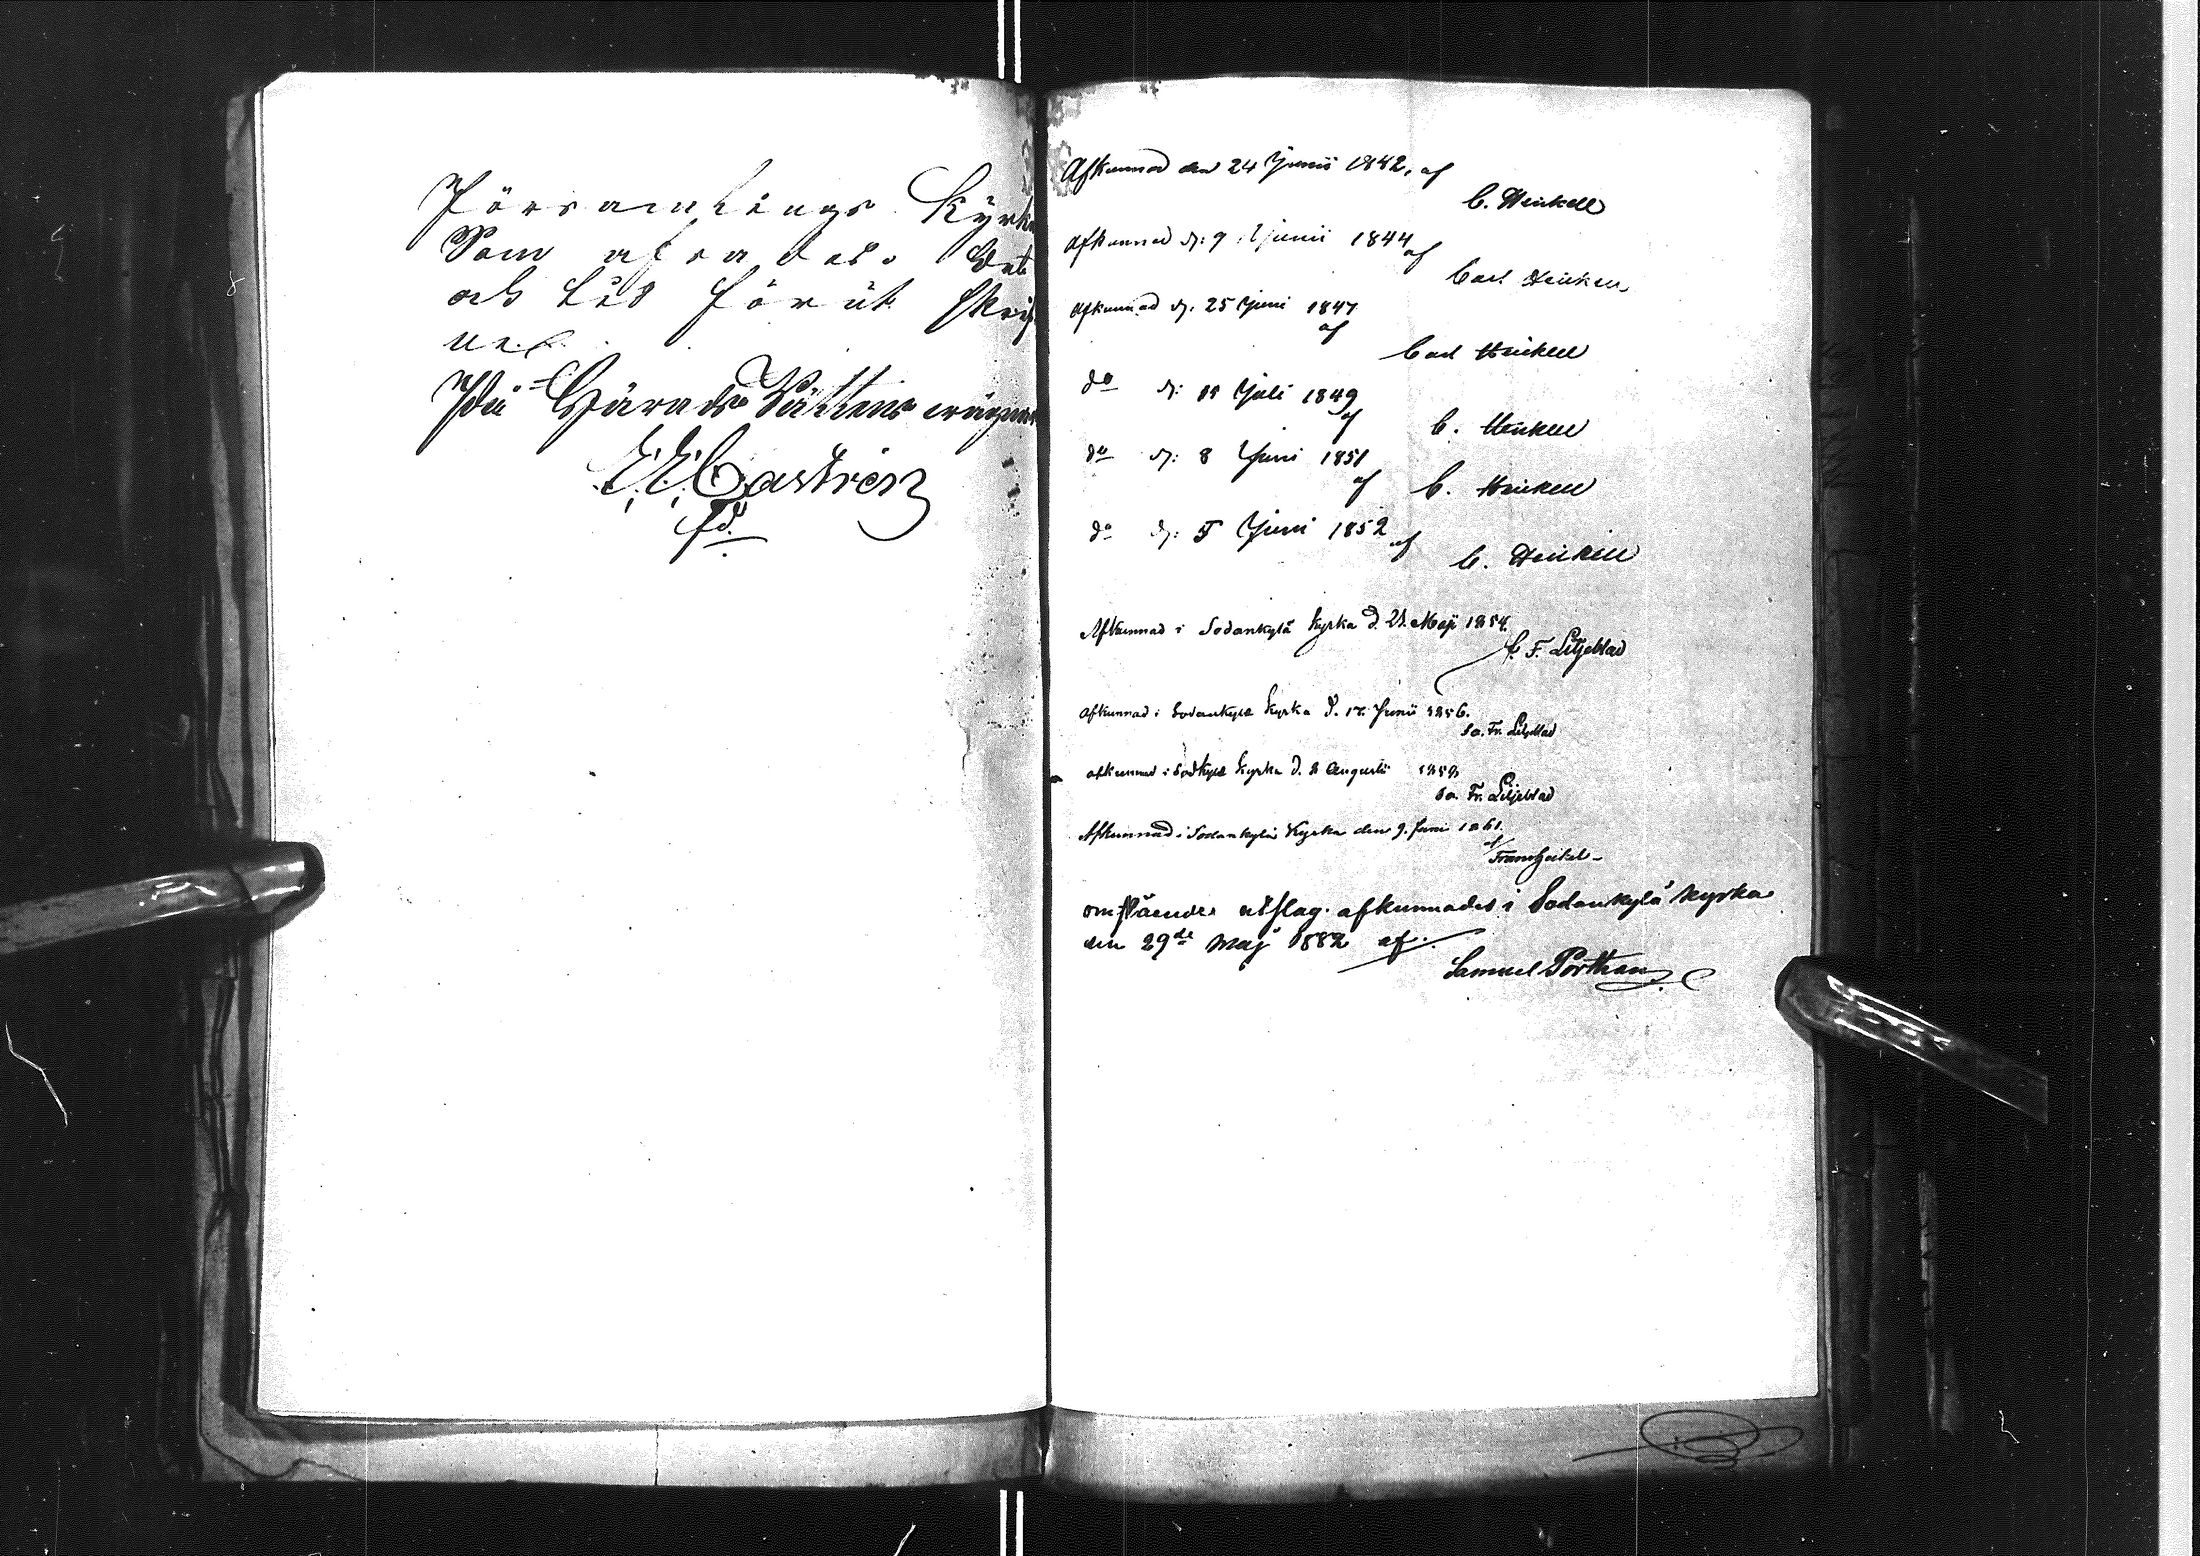 Församlings Kyrka
Som afsades. Det
och tid förut skrif
net.
På HäradsRättens wägnar
E. E. Castrén
Afkunnad den 24 Junii 1842, af
C. Heickell
Afkunnad d: 9 Junii 1844 af
Carl Heickell
Afkunnad d: 25 Juni 1847
af
Carl Heickell
do d: 15 Juli 1849
af
C. Heickell
do d: 8 Juni 1851
af C. Heickell
do d: 5 Juni 1852 af
C. Heickell
Afkunnad i Sodankylä kyrka d. 21 Maji 1854.
C. F. Liljeblad
Afkunnad i Sodankylä kyrka d. 15. Junii 1856.
Ca. Fr. Liljeblad
afkunnad i Sodkylä kyrka d. 8 Augusti 1858
Ca. Fr. Liljeblad
Afkunnad i Sodankylä Kyrka den 9. Juni 1861.
af
Frans Heikel
omstående utslag afkunnades i Sodankylä kyrka
den 29de Maj 1882 af
Samuel Pörthan